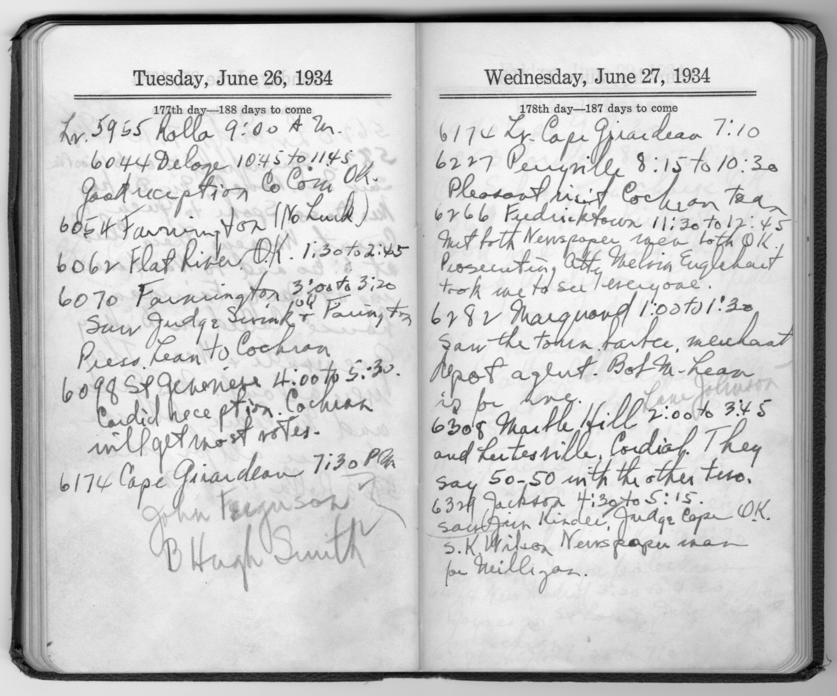 Tuesday, June 26, 1934
177th day—188 days to come
Lv. 5955 Rolla 9:00 A.M.
6044 Deloge 10:45 to 11:45
Good reception Co Com OK.
6054 Farmington (No Luck)
6062 Flat River O.K. 1:30 to 2:45
6070 Farmington 3:00 to 3:20
Saw Judge Swink OK &
Press. Lean to Cochran
6098 St Genevieve 4:00 to 5:30.
Cordid reception. Cochran
will get most votes.
6174 Cape Girardeau 7:30 P.M
John Ferguson
B Hugh Smith
Wednesday, June 27, 1934
178th day—187 days to come
6174 Lv. Cape Girardeau 7:10
6227 Perryville 8:15 to 10:30
Pleasant visit Cochran town
6266 Fredricktown 11:30 to 12:45
Met both Newspaper men both O.K.
Prosecuting Atty Melvin Englehart
took me to see everyone.
6282 Marquand 1:00 to 1:30
Saw the town barber, merchant
depot agent. Bob M-Lean
is for me. Lane Johnson
6308 Marble Hill 2:00 to 3:45
and Lutesville, Cordial. They
say 50-50 with the other two.
Jackson 4:30 to 5:15.
saw Jim Kinder, Judge Cape O.K.
S.K Wilson Newspaper man
for Milligan.